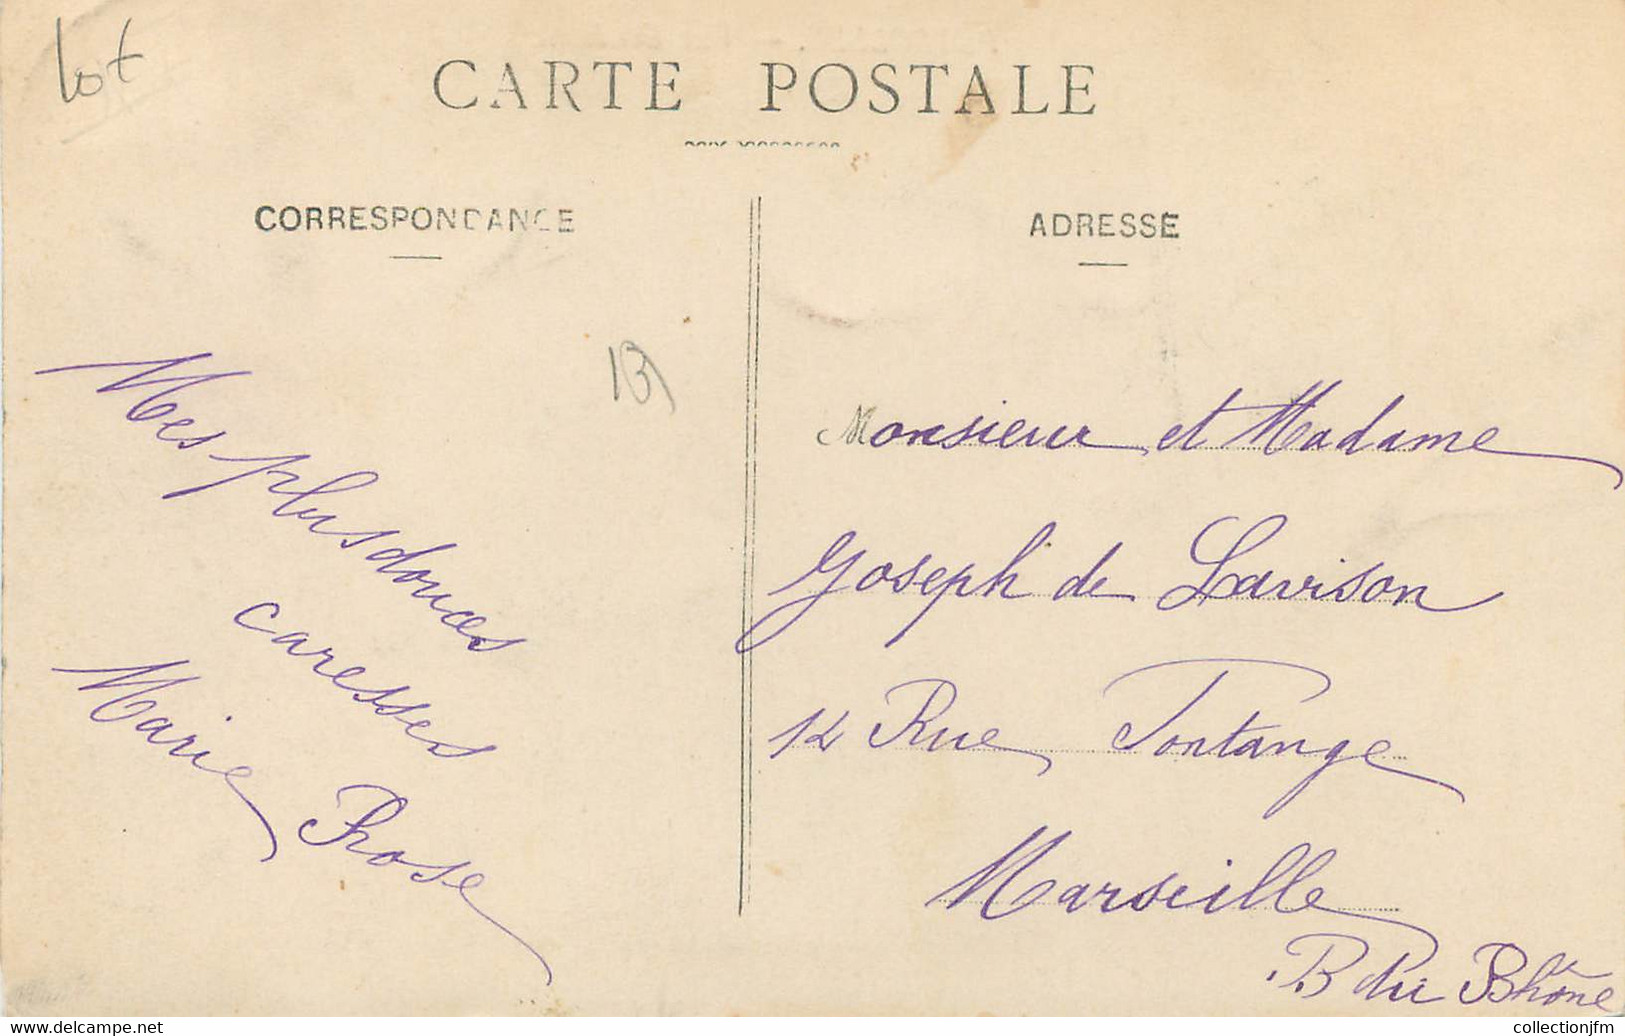 lot
CARTE POSTALE
CORRESPONDANCE
ADRESSE
13
Mes plus douces
caresses
Marie Rose
Monsieur et Madame
Joseph de Lavison
12 Rue Fontange
Marseille
B du Rhône
collectionjfm